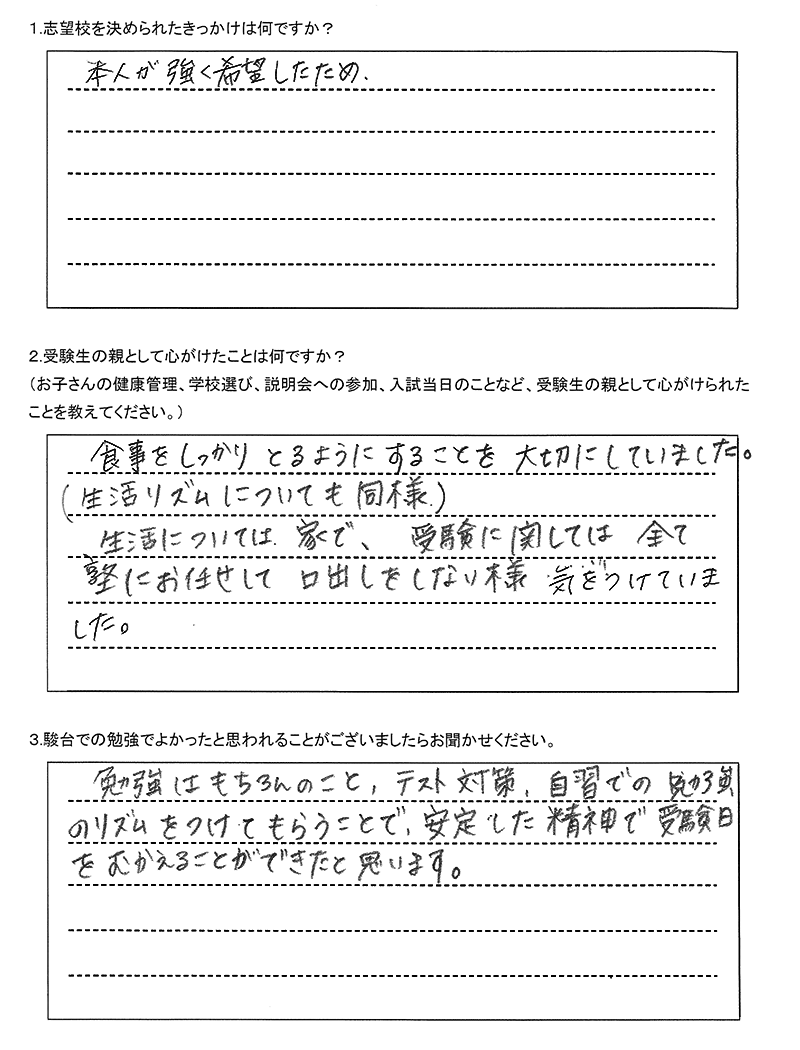 1.志望校を決められたきっかけは何ですか？
本人が強く希望したため.
2.受験生の親として心がけたことは何ですか？
（お子さんの健康管理、学校選び、説明会への参加、入試当日のことなど、受験生の親として心がけられた
ことを教えてください。）
食事をしっかりとるようにすることを大切にしていました。
(生活リズムについても同様.)
生活については家で、受験に関しては全て
塾にお任せして口出しをしない様気をつけていま
した。
3.駿台での勉強でよかったと思われることがございましたらお聞かせください。
勉強はもちろんのこと,テスト対策,自習での勉強
のリズムをつけてもらうことで,安定した精神で受験日
をむかえることができたと思います。